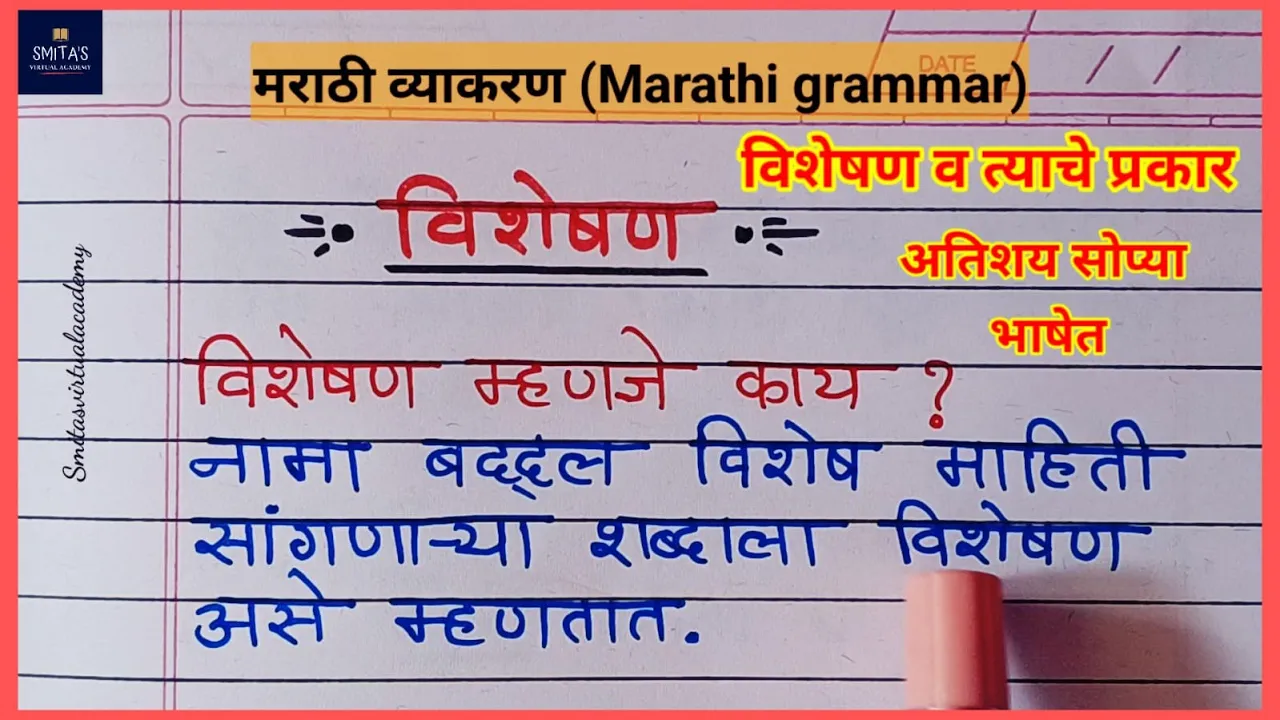 SMITA'S
VIRTUAL ACADEMY
मराठी व्याकरण (Marathi grammar)
DATE
विशेषण व त्याचे प्रकार
विशेषण
अतिशय सोप्या
भाषेत
Smitasvirtualacademy
विशेषण म्हणजे काय ?
नामा बद्दल विशेष माहिती
सांगणाऱ्या शब्दाला विशेषण
असे म्हणतात.